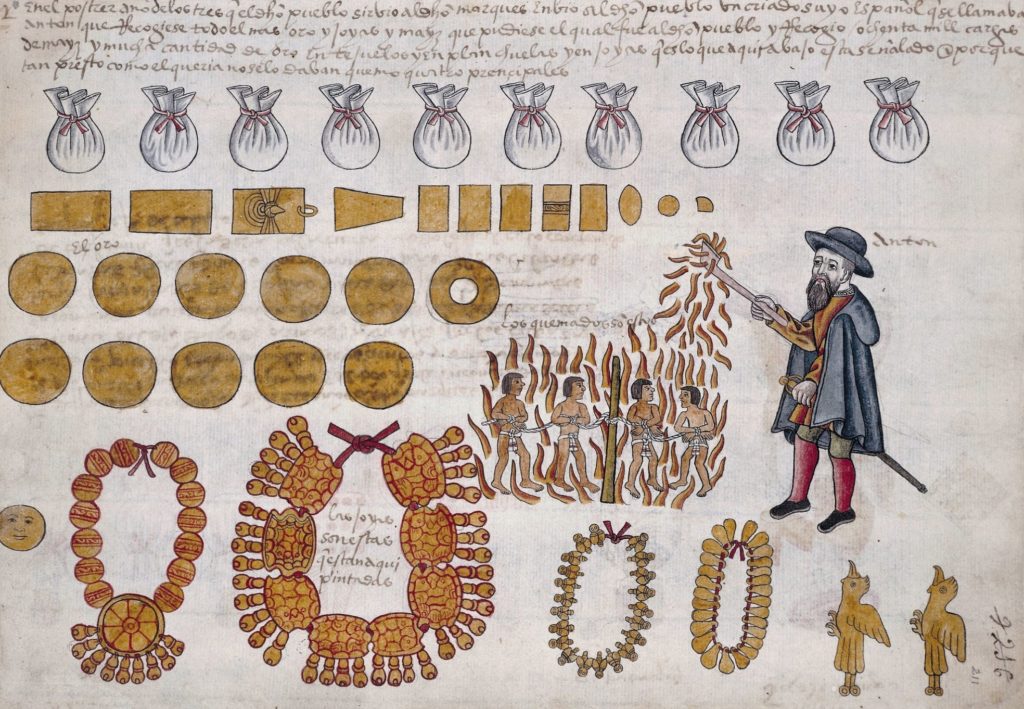 2º En el postrer año de los tres q̃ el dhõ pueblo sirbio al dhõ marques Enbio al dhõ pueblo un criado suyo Español q̃ se llamaba
anton que Recogiese todo el mas oro y joyas y mayz que pudiese el qual fue al dhõ pueblo y Recogio ochenta mill cargas
de mayz y mucha cantidad de oro En tejuelos y en planchuelas y en joyas q̃ es lo que aqui abajo esta señalado & porque
tan presto como el queria no se lo daban quemo quatro prencipales
El oro
anton
los quemados sõ estos
las joyas
son estas
q̃ estan aqui
pintadas
211